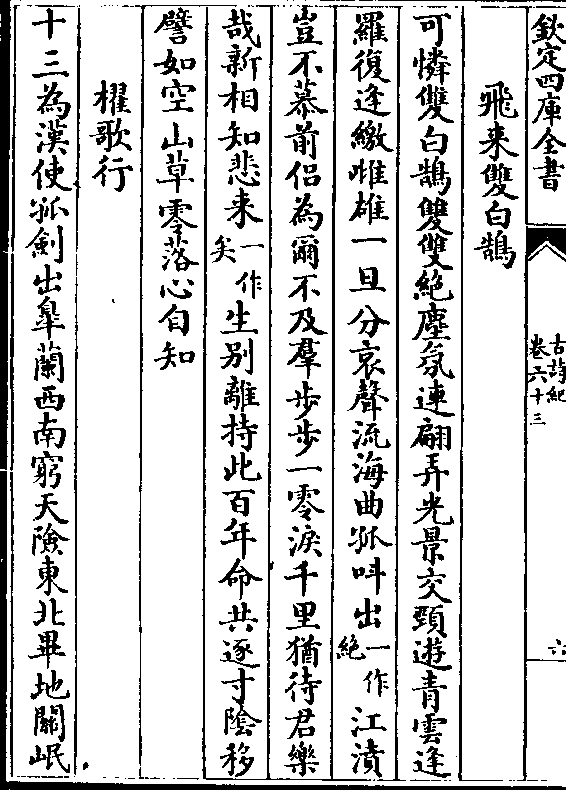 欽定四庫全書
古詩紀
卷六十三
六
飛来雙白鵠
可憐雙白鵠雙雙絶塵氛連翩弄光景交頸遊青雲逢
羅復逢繳雌雄一旦分哀聲流海曲孤呌出一作絶江濆
豈不慕前侣為爾不及羣步步一零淚千里猶待君樂
哉新相知悲来一作矣生别離持此百年命共逐寸隂移
譬如空山草零落心自知
櫂歌行
十三為漢使孤劍出臯蘭西南窮天險東北畢地關岷